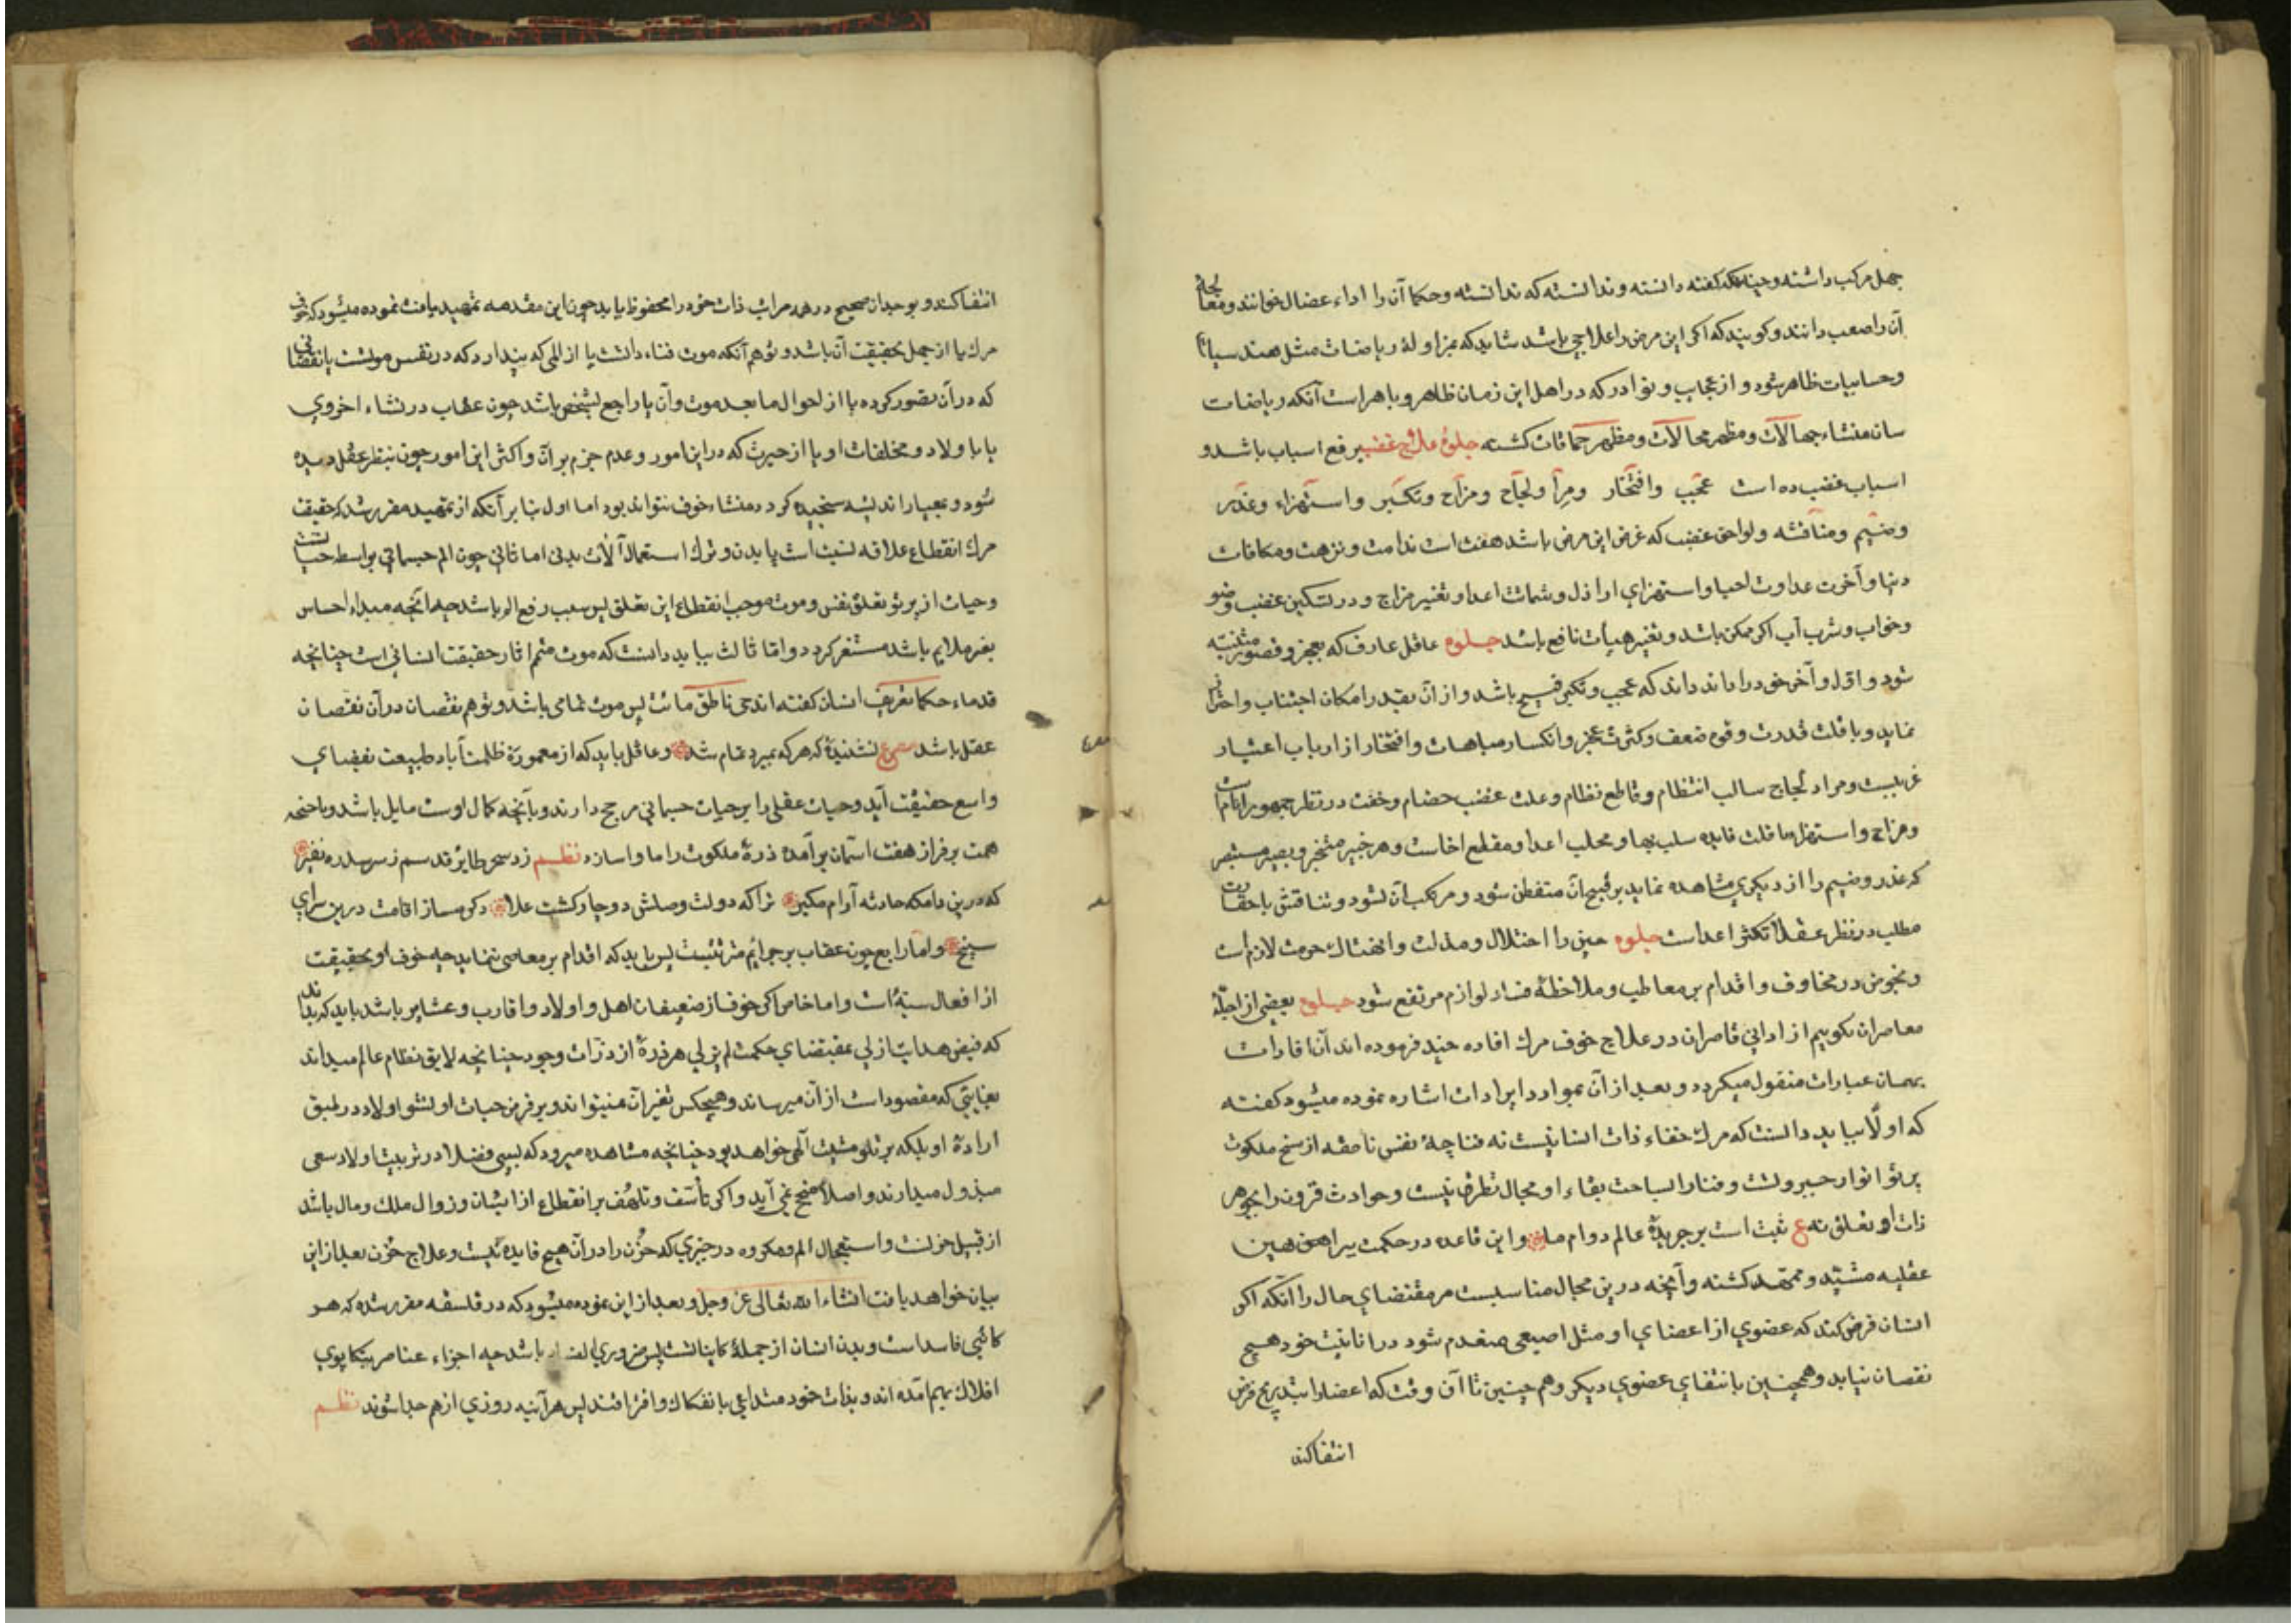 جهل مرکب داشته و چنانکه گفته دانسته و ندانسته که ندانسته و حکما آن را اداء عضال خوانند و معالجهٔ
آن را صعب دانند و کویند که اکر این مرض را علاجی باشد شاید که بمزاولهٔ ریاضات مثل هندسیات
و حسابیات ظاهر شود و از عجایب و نوادر که در اهل این زمان ظاهر و باهر است آنکه ریاضات
سان منشاء جهالات و مظهر محالات و مظهر حماقات کشته جلوهٔ علاج غضب رفع اسباب باشد و
اسباب غضب ده است عجب و افتخار و مرآ و لجاج و مزاح و تکبر و استهزاء و غدر
و ضیم و منافشه و لواحق غضب که عرض این مرض باشد هفت است ندامت و مکافات
دنیا و آخرت عداوت احبا و استهزای اراذل و شماتت اعدا و تغییر مزاج و در تسکین غضب وضو
و خواب و شرب آب اکر ممکن باشد و تغییر هیأت نافع باشد جلوه عاقل عارف که بعجز و قصور
شود و اول و آخر خود را داند داند که عجب و تکبر قبیح باشد و از آن بقدر امکان اجتناب و احتراز
نماید و با قلت قدرت و قوه ضعف و کثرت عجز و انکسار مباهات و افتخار از ارباب اعتبار
غریبست و مراد لجاج سالب انتظام و قاطع نظام و علت غضب خصام و خفت در نظر جمهور انام است
و مزاح و استهزا با قلت فایده سلب بها و محلب اعدا و مقطع اخاست و هر خبیر متخبر و بصیر مستبصر
که غدر و ضیم را از دیکری مشاهده نماید بر قبح آن متفطن شود و مرتکب آن نشود و تناقش با حقارت
مطلب در نظر عقلا تکثر اعداست جلوه جبن را اختلال و مذلت و انهتاک حرمت لازم است
و بخوض در مخاوف و اقدام بر معاطب و ملاحظهٔ فساد لوازم مرتفع شود جلوه بعضی از اجلهٔ
معاصران نکوییم از ادانی قاصران در علاج خوف مرک افاده چند فرموده اند آن افادات
بهمان عبارات منقول میکردد و بعد از آن بموارد ایرادات اشاره نموده میشود کفته
که اولا بباید دانست که مرک فناء ذات انسانیست نه فنا چه نفس ناطقه از سنخ ملکوت
پرتو انوار جبروتست و فنا را بساحت بقاء او مجال تطرق نیست و حوادث قرون را بجوهر
ذات او تعلق نه ع ثبت است بر جریدهٔ عالم دوام ما و این قاعده در حکمت ببراهین
عقلیه مشید و ممهد کشته و آنچه درین مجال مناسبست مر مقتضای حال را آنکه اکر
انسان فرض کند که عضوی از اعضای او مثل اصبعی منعدم شود در انانیت خود هیچ
نقصان نیابد و همچنین با انتفای عضوی دیکر و هم چنین تا آن وقت که اعضا را بتدریج فرض
انتفا کند
انتفا کند و بوجدان صحیح در همه مراتب ذات خود را محفوظ یابد چون این مقدمه تمهید یافت نموده میشود که خوف
مرک یا از جهل بحقیقت آن باشد و توهم آنکه موت فناء ذاتست یا از المی که پندارد که در نفس موتست یا نقصانی
که در آن تصور کرده یا از احوال ما بعد موت و آن یا راجع بشخص باشد چون عقاب در نشاء اخروی
یا با ولاد و مخلفات او یا از حیرت که در این امور و عدم جزم بر آن و اکثر این امور چون بنظر عقل دیده
شود و بمعیار اندیشه سنجیده کردد منشاء خوف نتواند بود اما اول بنا بر آنکه از تمهید مقرر شد که حقیقت
مرک انقطاع علاقه نسبت است با بدن و ترک استعمال آلات بدنی اما ثانی چون الم جسمانی بواسطه حیاتست
و حیات از پرتو تعلق نفس و موت موجب انقطاع این تعلق پس سبب رفع الم باشد چه آنچه مبداء احساس
بغیر ملایم باشد مستقر کردد و اما ثالث بباید دانست که موت متمم آثار حقیقت انسانی است چنانچه
قدماء حکما بتعریف انسان کفته اند حی ناطق مائت پس موت تمامی باشد و توهم نقصان در آن نقصان
عقل باشد مصرع نشنیدهٔ که هر که بمیرد تمام شد و عاقل باید که از معمورهٔ ظلمت آباد طبیعت بفضای
واسع حقیقت آید و حیات عقلی را بر حیات جسمانی مرجح دارند و بآنچه کمال اوست مایل باشد و باجنحه
همت بر فراز هفت آسمان برآمده ذروهٔ ملکوت را ماوا سازد نظم زد سحر طایر قدسم ز سر سدره صفیر
که درین دامکه حادثه آرام مکیر ترا که دولت وصلش دوچار کشت علا دکر مساز اقامت درین سرای
سپنج و اما رابع چون عقاب بر جرایم مترتبست پس باید که اقدام بر معاصی ننماید چه خوف او بحقیقت
از افعال سیئه است و اما خامس اکر خوف از ضعیفان اهل و اولاد و اقارب و عشایر باشد باید که بداند
که فیض هدایت ازلی بمقتضای حکمت لم یزلی هر ذرهٔ از ذرات وجود چنانچه لایق نظام عالم میداند
بغایتی که مقصود است از آن میرساند و هیچکس تغیر آن نمیتواند و بر فرض حیات او نشو اولاد در طبق
ارادهٔ او بلکه بر تلو مشیت آلهی خواهد بود چنانچه مشاهده میرود که بسی فضلا در تربیت اولاد سعی
مبذول میدارند و اصلا منجح نمی آید و اکر تأسف و تلهف بر انقطاع از ایشان و زوال ملک و مال باشد
از قبیل حزنست و استعجال الم و مکروه در چیزی که حزن را در آن هیچ فایده نیست و علاج حزن بعد از این
بیان خواهد یافت انشاء الله تعالی عز وجل و بعد از این نموده میشود که در فلسفه مقرر شده که هر
کائنی فاسد است و بدن انسان از جملهٔ کایناتست پس ضروری الفساد باشد چه اجزاء عناصر بتکاپوی
افلاک بهم آمده اند و بذات خود متداعی بانفکاک و افتراقند پس هرآینه روزی از هم جدا شوند نظم